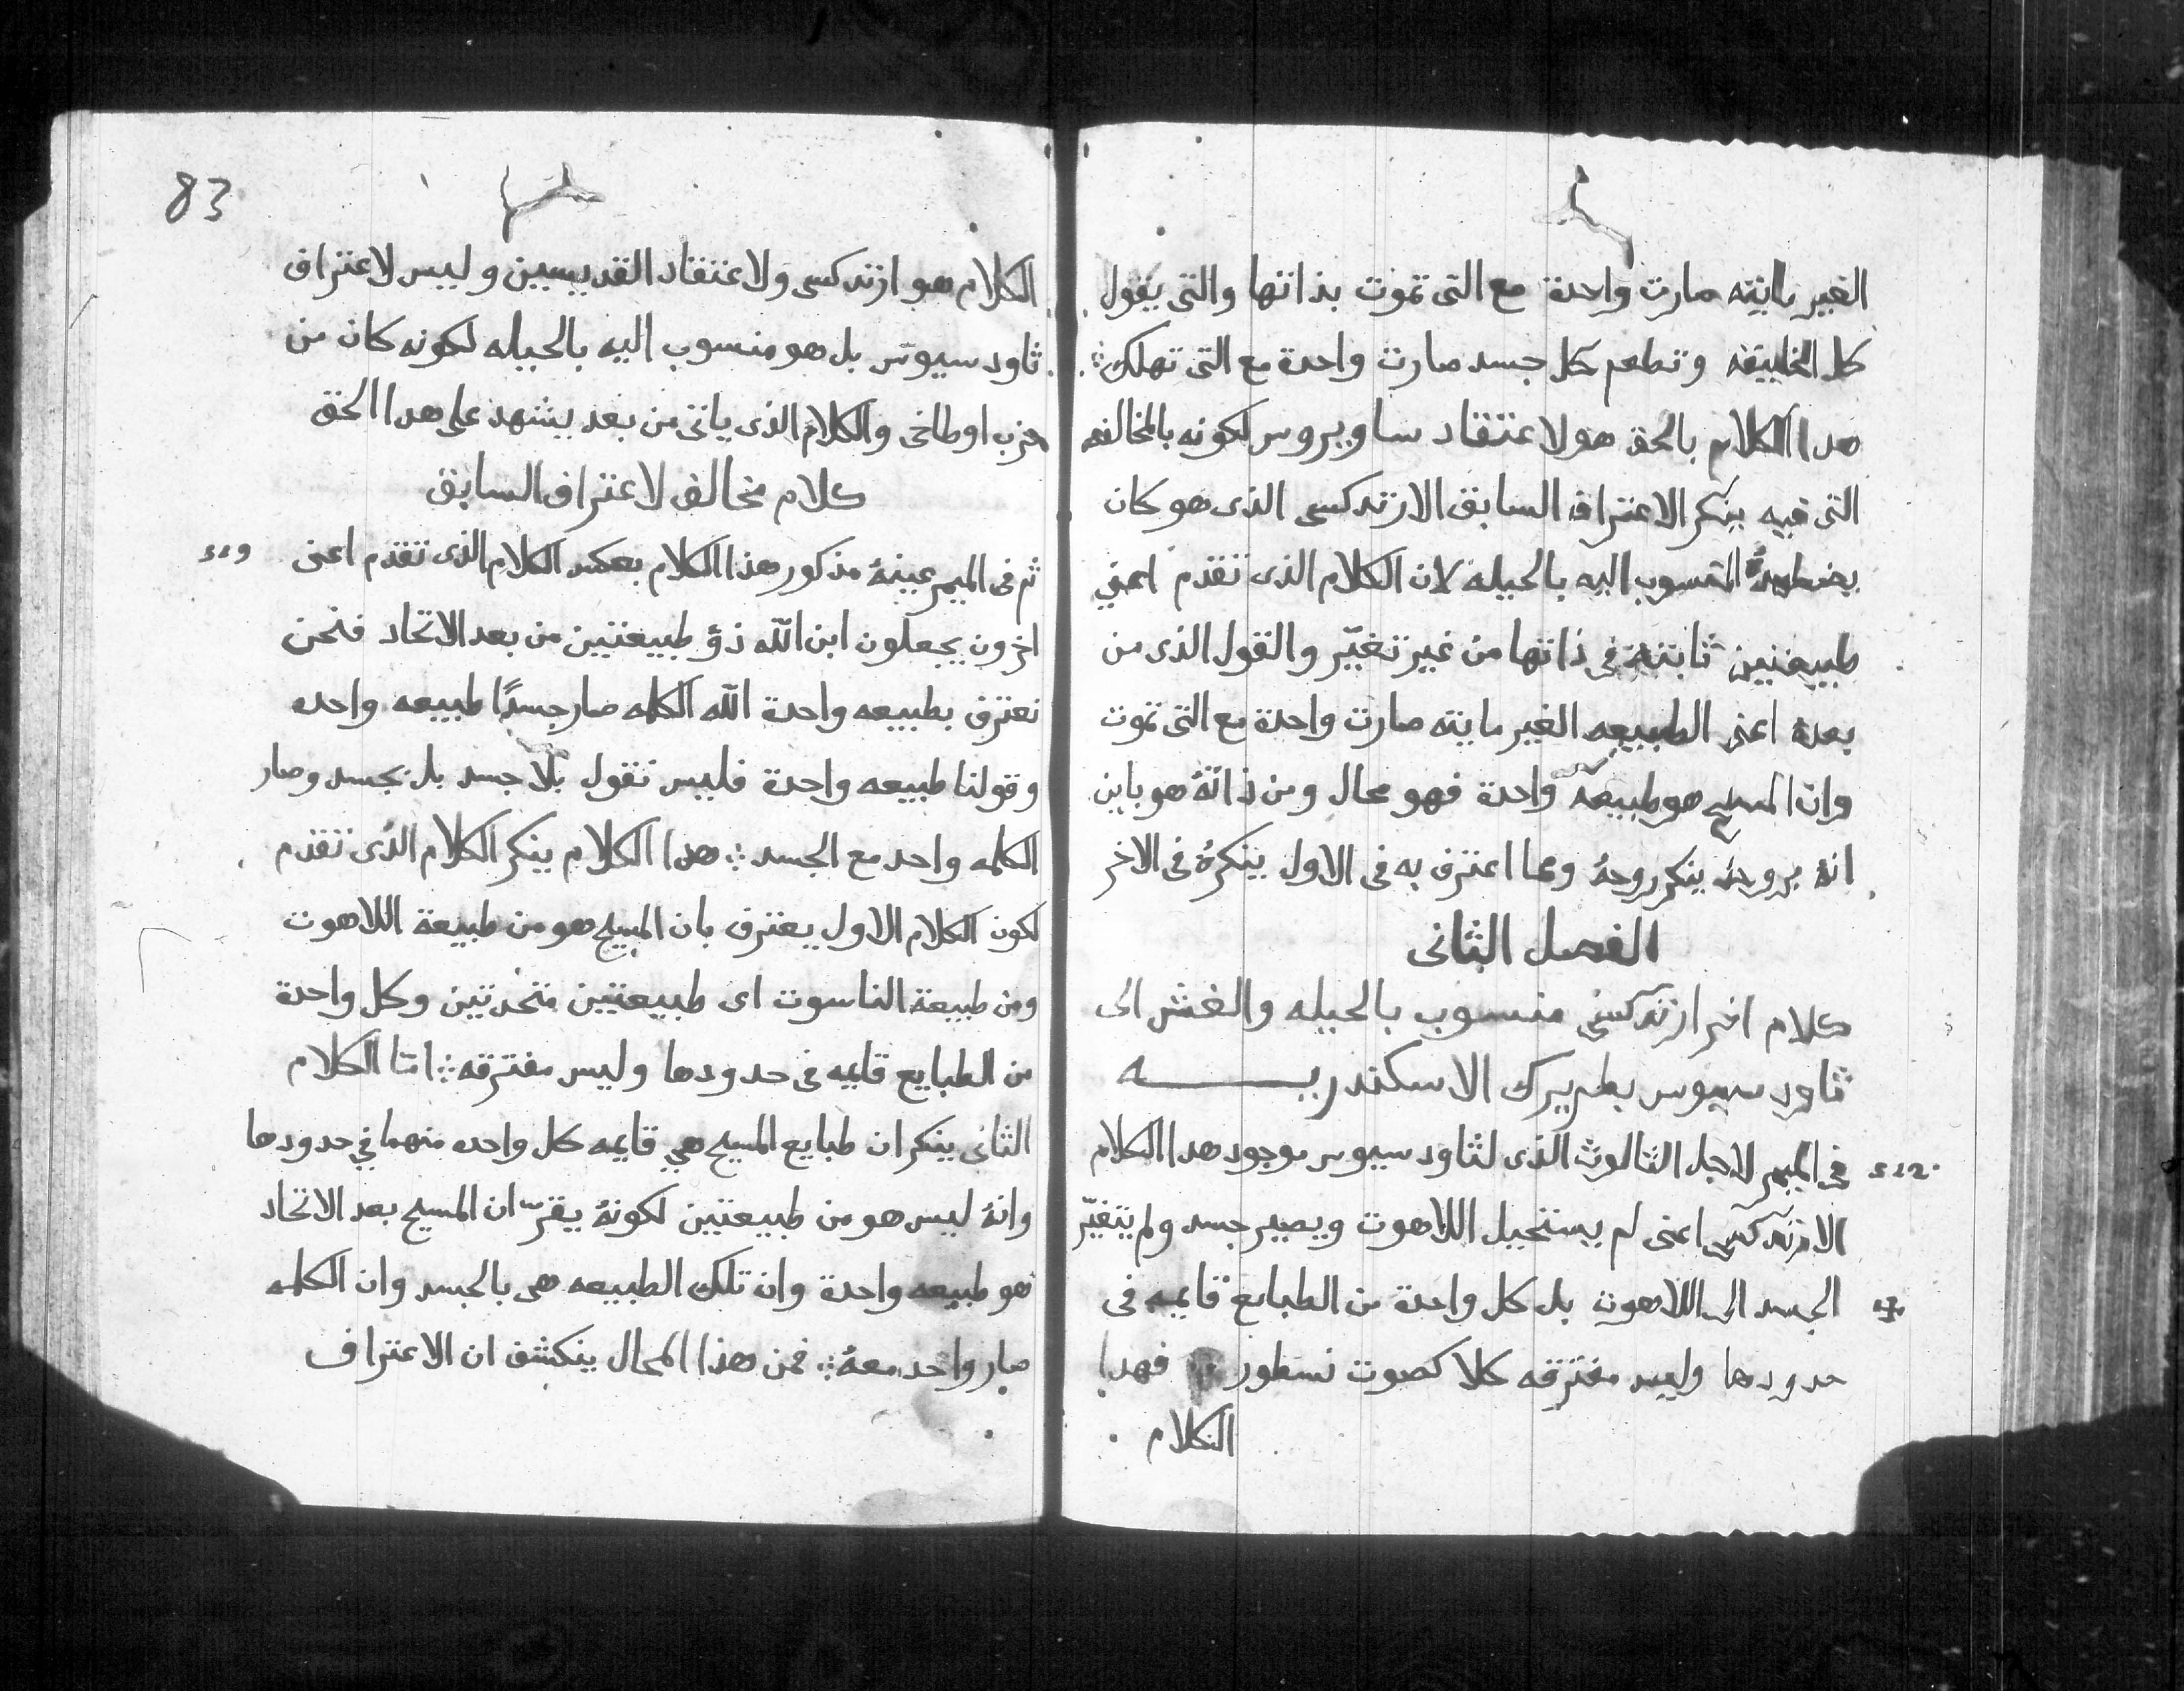 الغير مايته صارت واحدة مع التى تموت بذاتها والتى يقول
كل الخليقه وتطعم كل جسد صارت واحدة مع التى تهلك ⁘
هدا الكلام بالحق هو لاعتقاد ساويروس لكونه بالمخالفه
التى فيه ينكر الاعتراف السابق الارتدكسى الذى هو كان
بخطيدهُ المنسوب اليه بالحيله لان الكلام الذى تقدم اعنى
طبيعتين ثابتة فى ذاتها من غير تغيّر والقول الذى من
بعدهُ اعنى الطبيعه الغير مايته صارت واحدة مع التى تموت
وان المسيح هو طبيعه واحدة فهو محال ومن ذاتهُ هو باين
انهُ بروحهُ ينكر روحهُ وعما اعترف به فى الاول ينكرهُ فى الاخر
الفصل الثانى
كلام اخر ارتدكسى منسوب بالحيله والغش الى
ثاودسيوس بطريرك الاسكندريـــه
فى الميمر لاجل الثالوث الذى لثاودسيوس موجود هدا الكلام
الارتدكسى اعنى لم يستحيل اللاهوت ويصير جسد ولم يتغيّر
الجسد الى اللاهوت بل كل واحدة من الطبايع قايمه فى
حدودها وليس مفترقه كلا كصوت نسطور ⁘ فهدا
الكلام
83
الكلام هو ارتدكسى ولاعتقاد القديسيين وليس لاعتراف
ثاودسيوس بل هو منسوب اليه بالحيله لكونه كان من
حزب اوطاخى والكلام الذى ياتى من بعد يشهد على هدا الحق
كلام مخالف لاعتراف السابق
ثم فى الميمر عينهُ مذكور هذا الكلام بعكس الكلام الذى تقدم اعنى
اخرون يجعلون ابن الله ذو طبيعتين من بعد الاتحاد فنحن
نعترف بطبيعه واحدة الله الكلمه صار جسدًا طبيعه واحده
وقولنا طبيعه واحدة فليس نقول بلا جسد بل بجسد وصار
الكلمه واحد مع الجسد ⁘ هدا الكلام ينكر الكلام الذى تقدم
لكون الكلام الاول يعترف بان المسيح هو من طبيعة اللاهوت
ومن طبيعة الناسوت اى طبيعتين متحدتين وكل واحدة
من الطبايع قايمه فى حدودها وليس مفترقه ⁘ امّا الكلام
الثانى ينكر ان طبايع المسيح هى قايمه كل واحده منهما فى حدودها
وانهُ ليس هو من طبيعتين لكونهُ يقرّ ان المسيح بعد الاتحاد
هو طبيعه واحدة وان تلك الطبيعه هى بالجسد وان الكلمه
صار واحد معهُ ⁘ فمن هذا المحال ينكشف ان الاعتراف